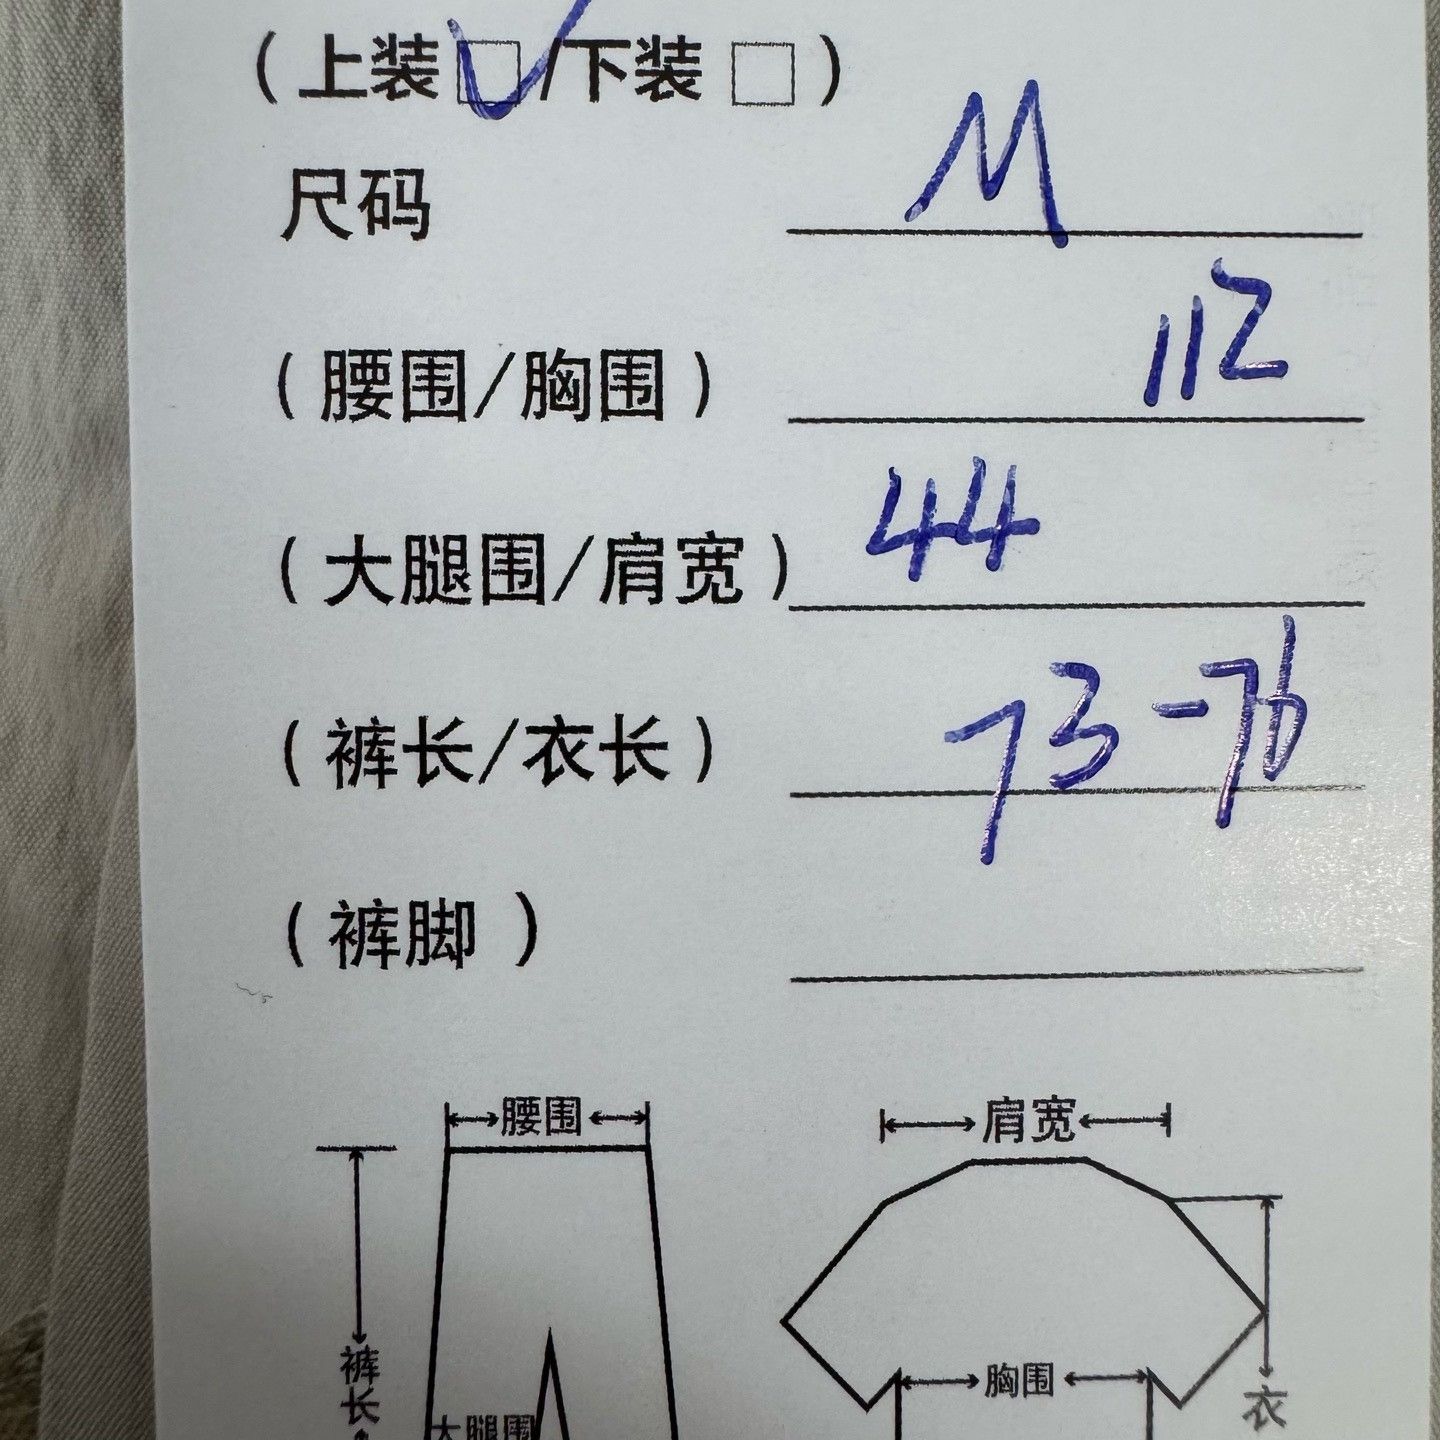 （上装□✓/下装□）
尺码 M
（腰围/胸围） 112
（大腿围/肩宽） 44
（裤长/衣长） 73-76
（裤脚）
腰围
肩宽
裤长
胸围
衣
大腿围